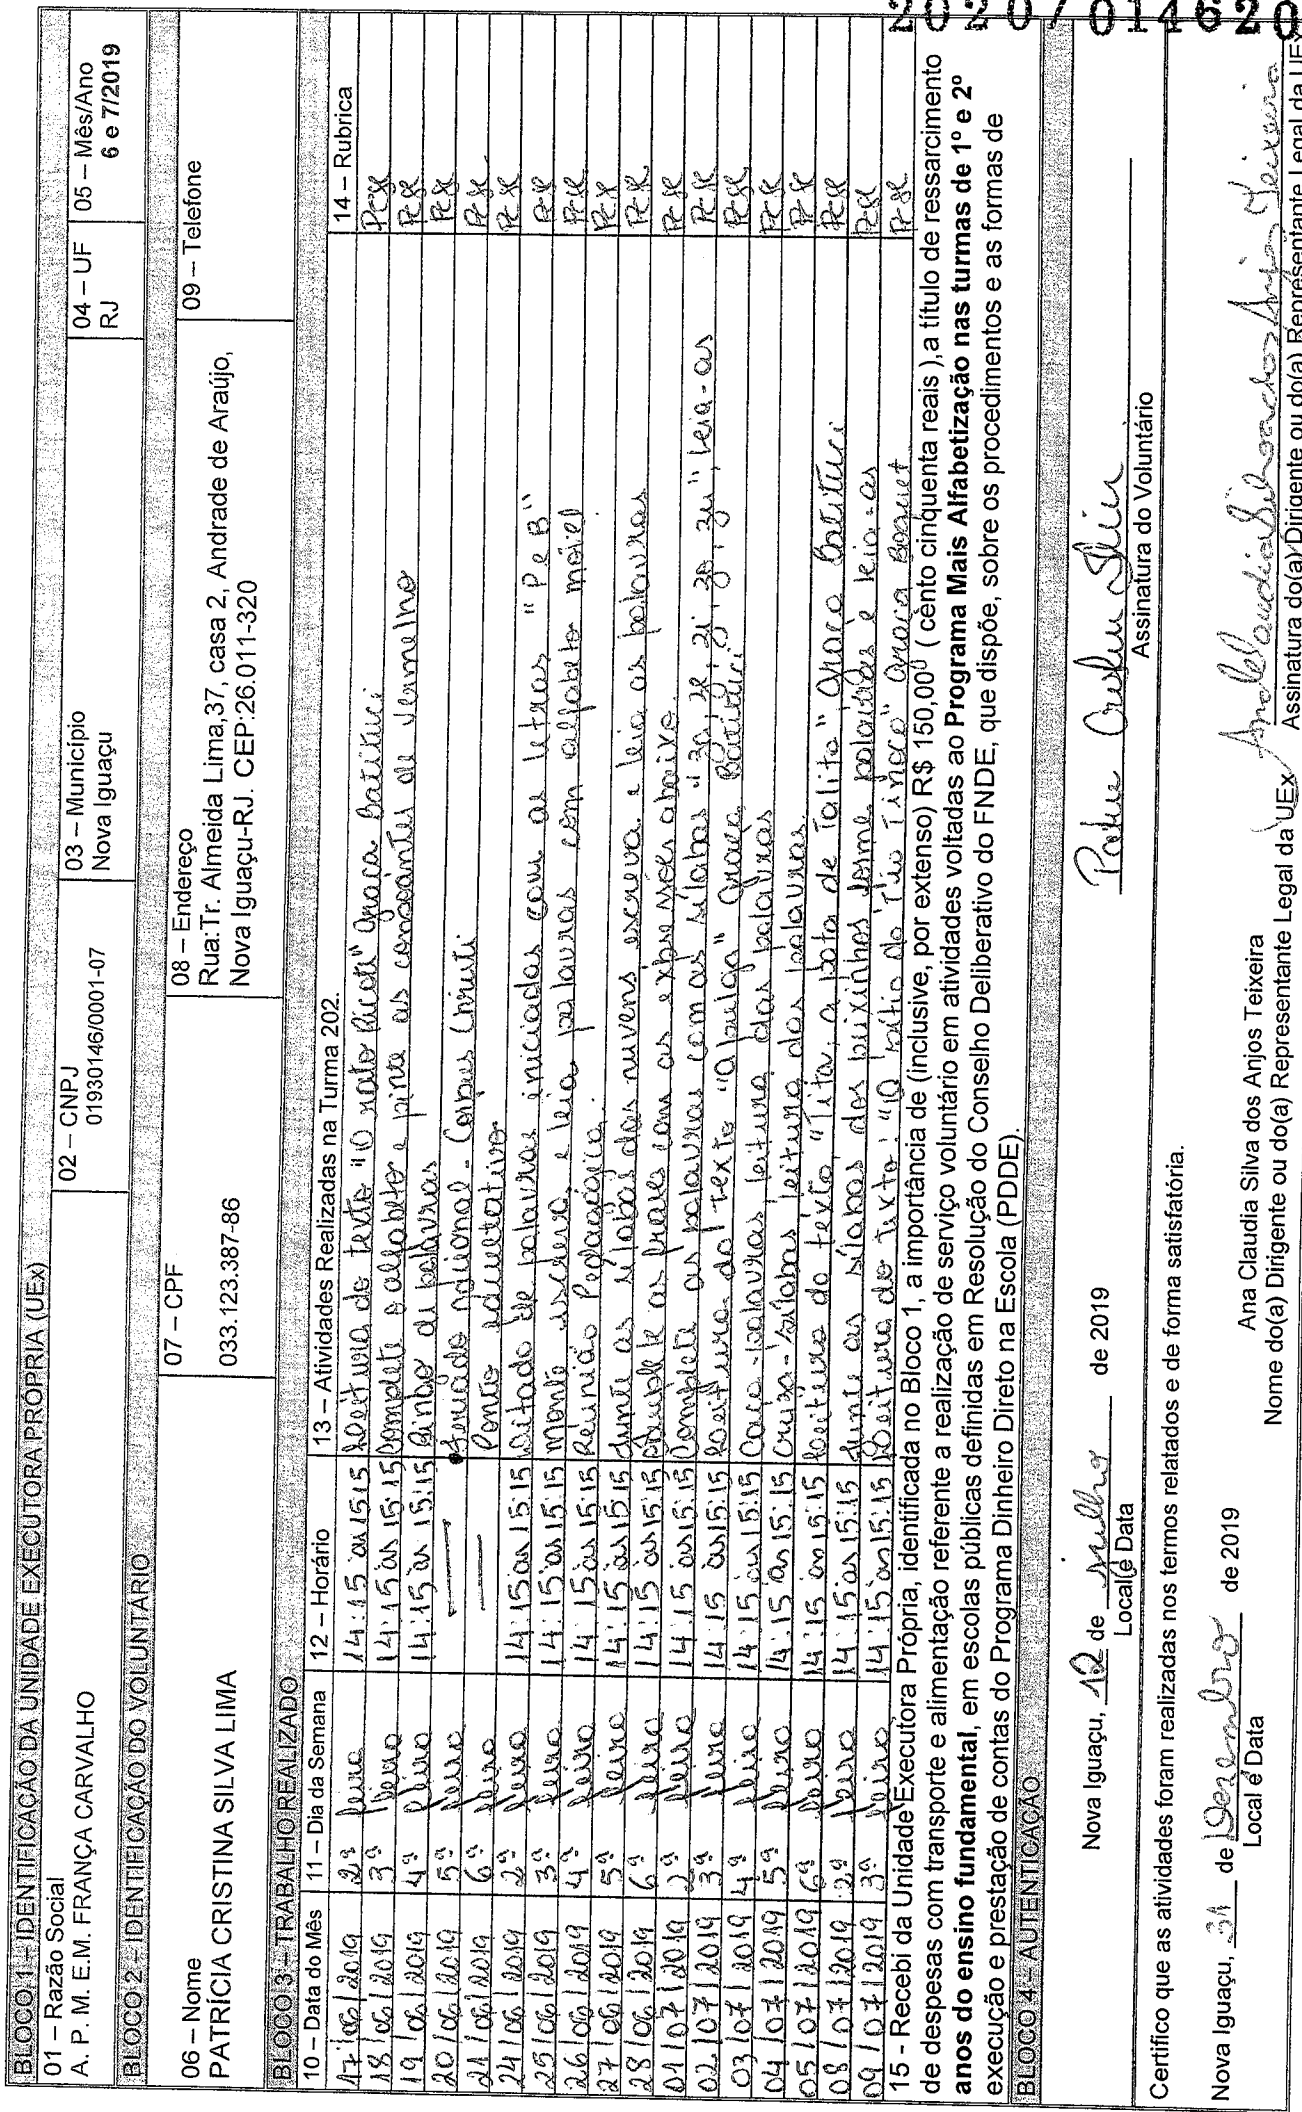 BLOCO 1 – IDENTIFICAÇÃO DA UNIDADE EXECUTORA PRÓPRIA (UEx)
01 – Razão Social
A. P. M. E.M. FRANÇA CARVALHO
02 – CNPJ
01930146/0001-07
03 – Município
Nova Iguaçu
04 – UF
RJ
05 – Mês/Ano
6 e 7/2019
BLOCO 2 – IDENTIFICAÇÃO DO VOLUNTÁRIO
06 – Nome
PATRÍCIA CRISTINA SILVA LIMA
07 – CPF
033.123.387-86
08 – Endereço
Rua:Tr. Almeida Lima,37, casa 2, Andrade de Araújo,
Nova Iguaçu-RJ. CEP:26.011-320
09 – Telefone
BLOCO 3 – TRABALHO REALIZADO
10 – Data do Mês 11 – Dia da Semana 12 – Horário 13 – Atividades Realizadas na Turma 202. 14 – Rubrica
17/06/2019 2ª feira 14:15 às 15:15 Leitura do texto "O rato Ricoti" Graça Batituci
18/06/2019 3ª feira 14:15 às 15:15 Complete o alfabeto e pinte as consoantes de vermelho
19/06/2019 4ª feira 14:15 às 15:15 Bingo de palavras
20/06/2019 5ª feira — Feriado nacional - Corpus Christi
21/06/2019 6ª feira — Ponto facultativo
24/06/2019 2ª feira 14:15 às 15:15 Ditado de palavras iniciadas com as letras "P e B"
25/06/2019 3ª feira 14:15 às 15:15 Monte, escreva, e leia palavras com alfabeto móvel
26/06/2019 4ª feira 14:15 às 15:15 Reunião Pedagógica.
27/06/2019 5ª feira 14:15 às 15:15 Junte as sílabas das nuvens escreva e leia as palavras
28/06/2019 6ª feira 14:15 às 15:15 as frases com as expressões abaixo.
01/07/2019 2ª feira 14:15 às 15:15 Complete as palavras com as sílabas "za, ze, zi, zo, zu", leia-as
02/07/2019 3ª feira 14:15 às 15:15 Leitura do texto "A pulga" Graça Batituci
03/07/2019 4ª feira 14:15 às 15:15 Caça-palavras leitura das palavras
04/07/2019 5ª feira 14:15 às 15:15 Cruza-sílabas leitura das palavras.
05/07/2019 6ª feira 14:15 às 15:15 Leitura do texto, "Tita, a pata de Talita" Graça Batituci
08/07/2019 2ª feira 14:15 às 15:15 Junte as sílabas dos peixinhos forme palavras e leia-as
09/07/2019 3ª feira 14:15 às 15:15 Leitura do texto: "O sítio do Tio Tinoco" Graça Boquet
15 - Recebi da Unidade Executora Própria, identificada no Bloco 1, a importância de (inclusive, por extenso) R$ 150,00 ( cento cinquenta reais ),a título de ressarcimento
de despesas com transporte e alimentação referente a realização de serviço voluntário em atividades voltadas ao Programa Mais Alfabetização nas turmas de 1º e 2º
anos do ensino fundamental, em escolas públicas definidas em Resolução do Conselho Deliberativo do FNDE, que dispõe, sobre os procedimentos e as formas de
execução e prestação de contas do Programa Dinheiro Direto na Escola (PDDE).
BLOCO 4 – AUTENTICAÇÃO
Nova Iguaçu, 12 de julho de 2019
Local e Data
Assinatura do Voluntário
Certifico que as atividades foram realizadas nos termos relatados e de forma satisfatória.
Nova Iguaçu, 31 de Dezembro de 2019
Local e Data
Ana Claudia Silva dos Anjos Teixeira
Nome do(a) Dirigente ou do(a) Representante Legal da UEx
Ana Claudia Silva dos Anjos Teixeira
Assinatura do(a) Dirigente ou do(a) Representante Legal da UEx
20207014620